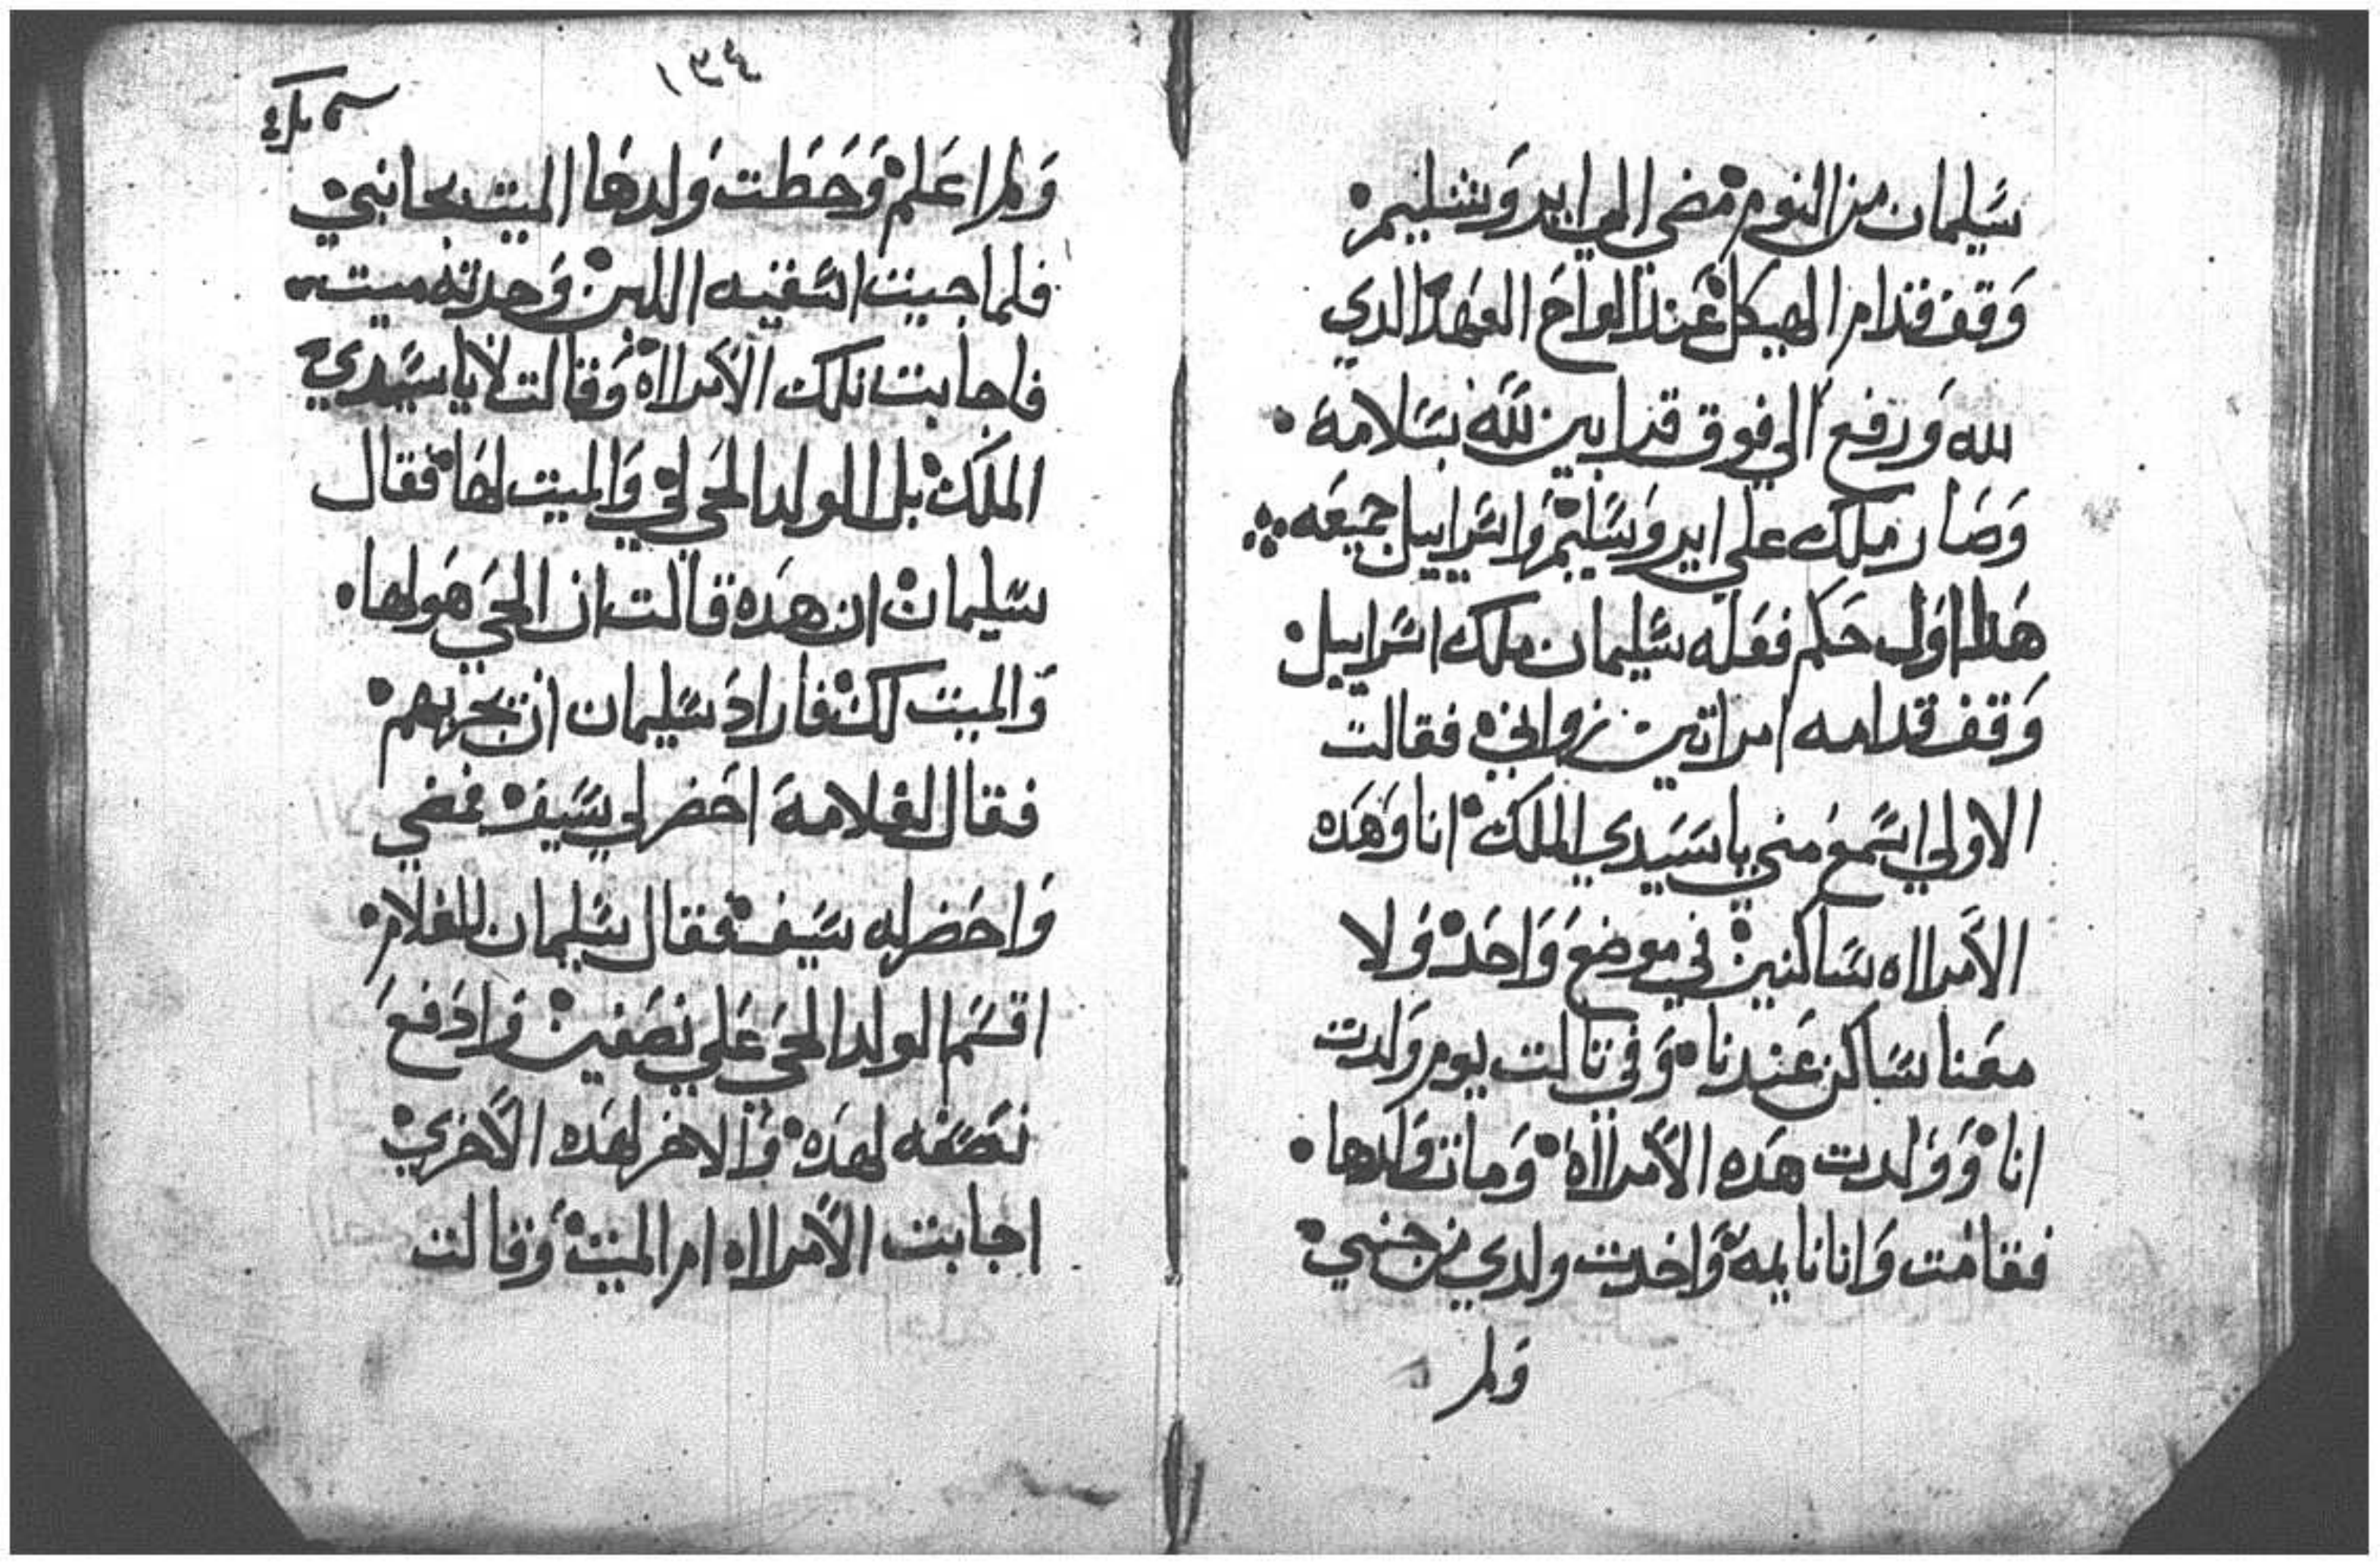 سليمان من النوم مضي الي ايروشليم
وقف قدام الهيكل عند الواح العهد الدي
لله ورفع الي فوق قرابين لله بسلامة
وصار ملك علي ايروسليم واسراييل جميعه
هدا اول حكم فعله سليمان ملك اسراييل
وقف قدامه امراتين زواني فقالت
الاولي اسمع مني يا سيدي الملك انا وهده
الامرااه ساكنين في موضع واحد ولا
معنا ساكن عندنا وفي تالت يوم ولدت
انا وولدت هده الامرااة ومات ولدها
فقامت وانا نايمة واخدت ولدي من جنبي
ولم
ولم اعلم وحطت ولدها الميت بجانبي
فلما جيت اسقيه اللبن وجدته ميت
فاجابت تلك الامرااة وقالت لا يا سيدي
الملك بل الولد الحي لي والميت لها فقال
سليمان ان هده قالت ان الحي هو لها
والميت لك فاراد سليمان ان يجربهم
فقال لغلامة احضر لي بسيف فمضي
واحضر له سيف فقال سليمان للغلام
اقسم الولد الحي علي نصفين وادفع
نصفه لهده والاخر لهده الاخري
اجابت الامرااه ام الميت وقالت